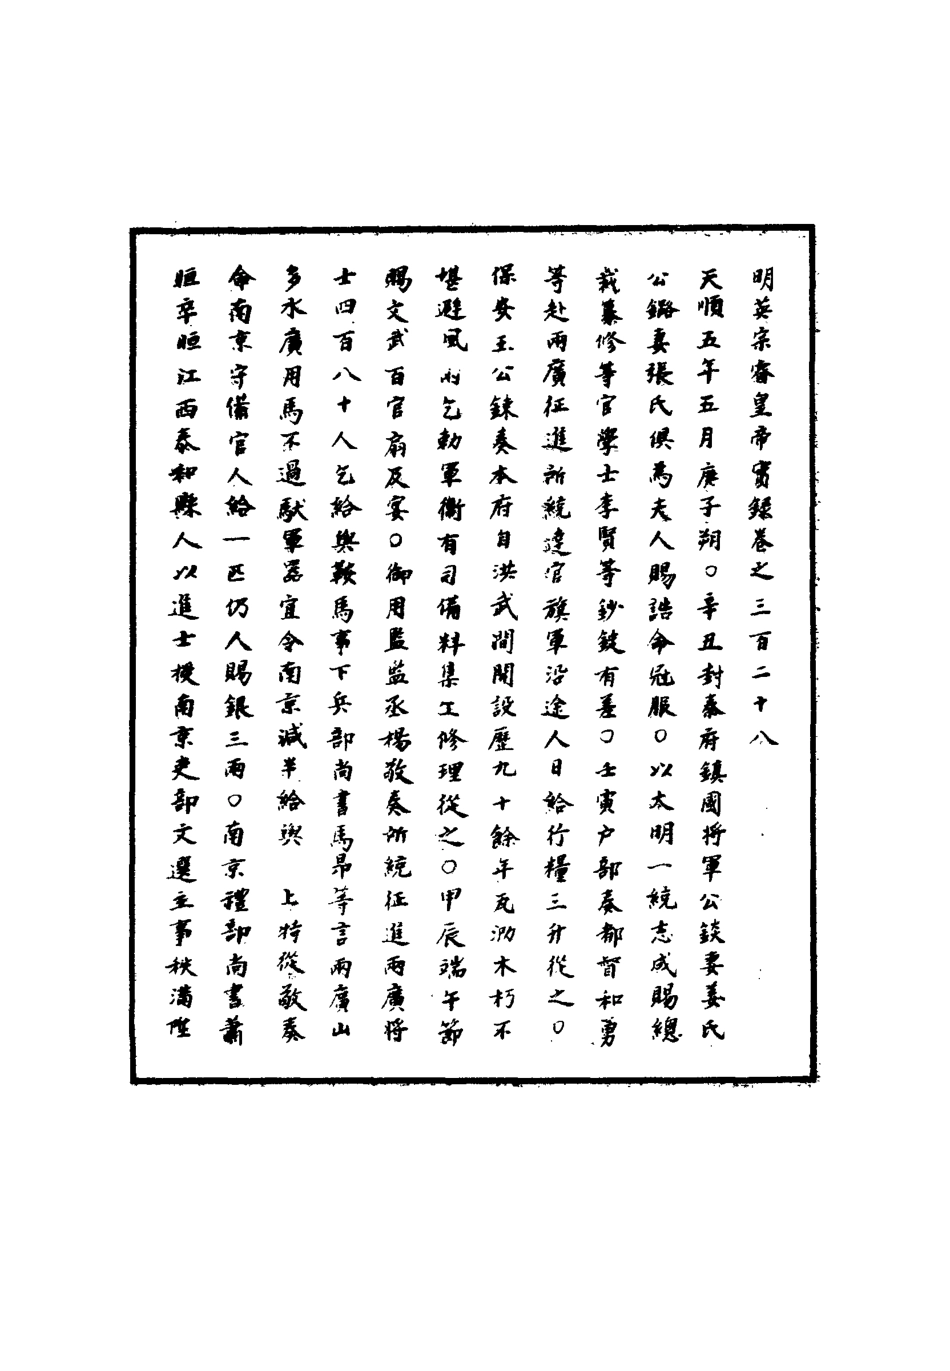 明英宗睿皇帝實錄卷之三百二十八
天順五年五月庚子朔○辛丑封秦府鎮國將軍公錟妻姜氏
公鏴妻張氏俱為夫人賜誥命冠服○以大明一統志成賜總
裁纂修等官學士李賢等鈔錠有差○壬寅戶部奏都督和勇
等赴兩廣征進所統達官旗軍沿途人日給行糧三升從之○
保安王公鍊奏本府自洪武間開設歷九十餘年瓦泐木朽不
堪避風雨乞勅軍衛有司備料集工修理從之○甲辰端午節
賜文武百官扇及宴○御用監監丞楊敬奏所統征進兩廣將
士四百八十人乞給與鞍馬事下兵部尚書馬昂等言兩廣山
多水廣用馬不過馱軍器宜令南京減半給與　上特從敬奏
命南京守備官人給一匹仍人賜銀三兩○南京禮部尚書蕭
晅卒晅江西泰和縣人以進士授南京吏部文選主事秩滿陞